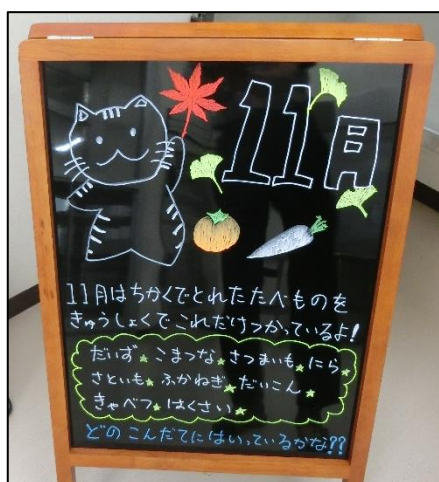 11月
11月はちかくでとれたたべものを
きゅうしょくでこれだけつかっているよ!
だいず★こまつな★さつまいも★にら
さといも★ふかねぎ★だいこん★
きゃべつ★はくさい★
どのこんだてにはいっているかな??